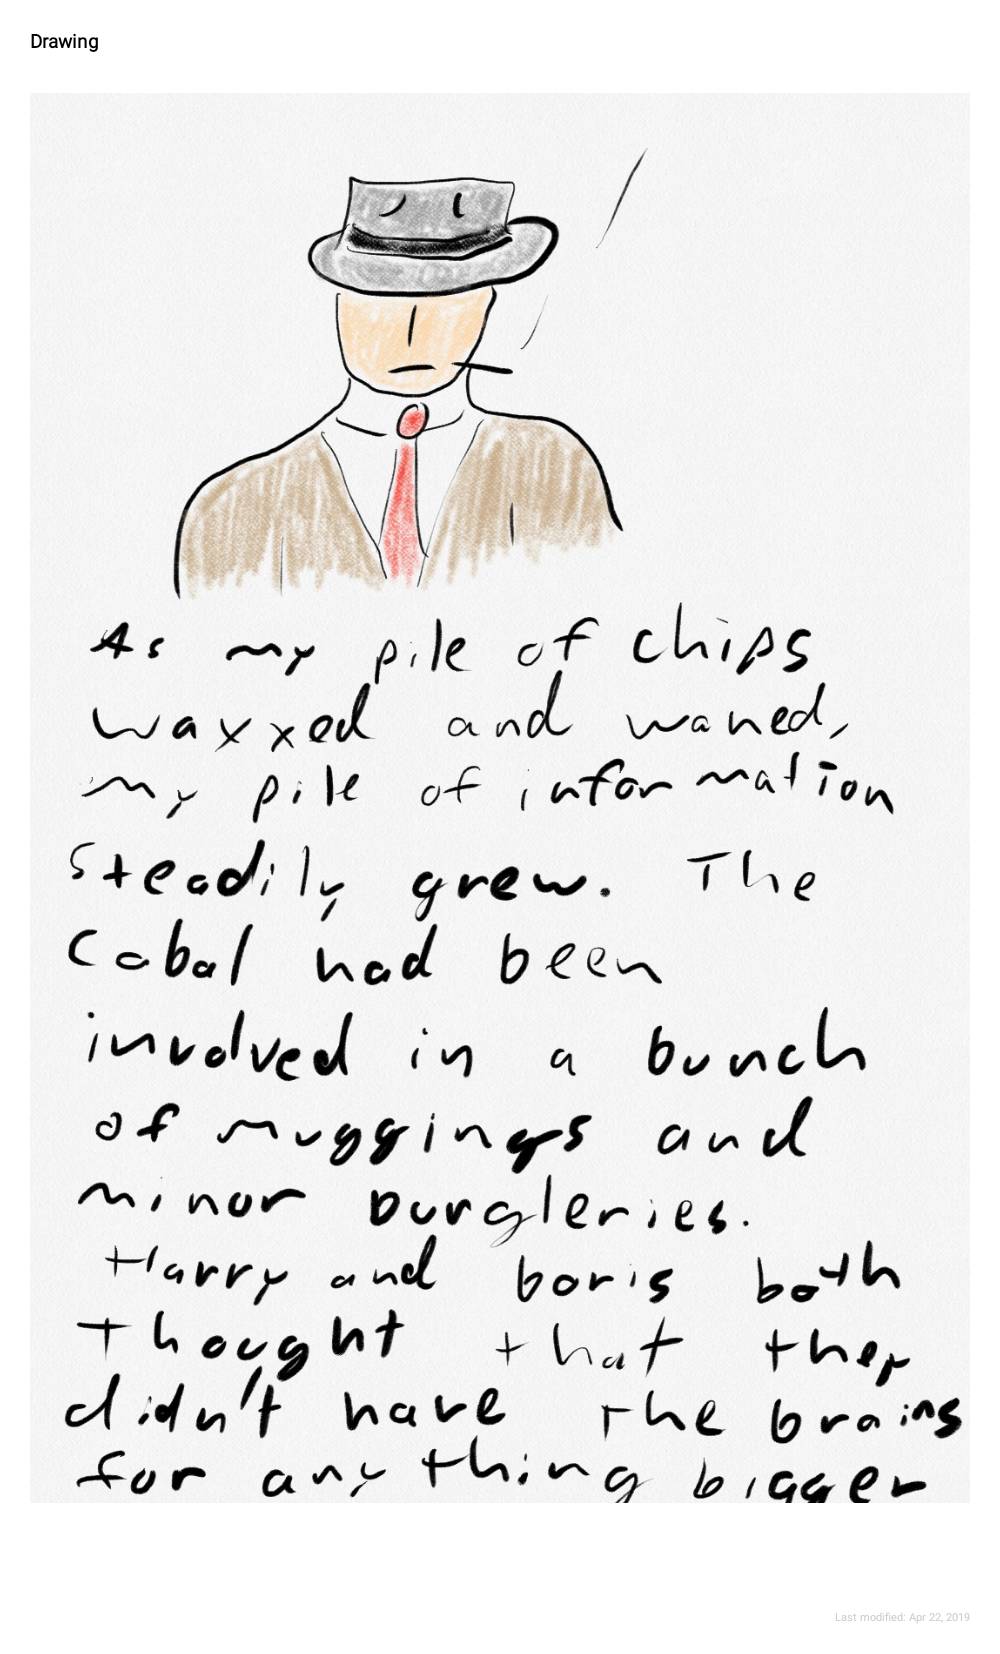 Drawing
As my pile of chips
waxxed and waned,
my pile of information
steadily grew. The
Cabal had been
involved in a bunch
of muggings and
minor burgleries.
Harry and boris both
thought that they
didn't have the brains
for anything bigger
Last modified: Apr 22, 2019